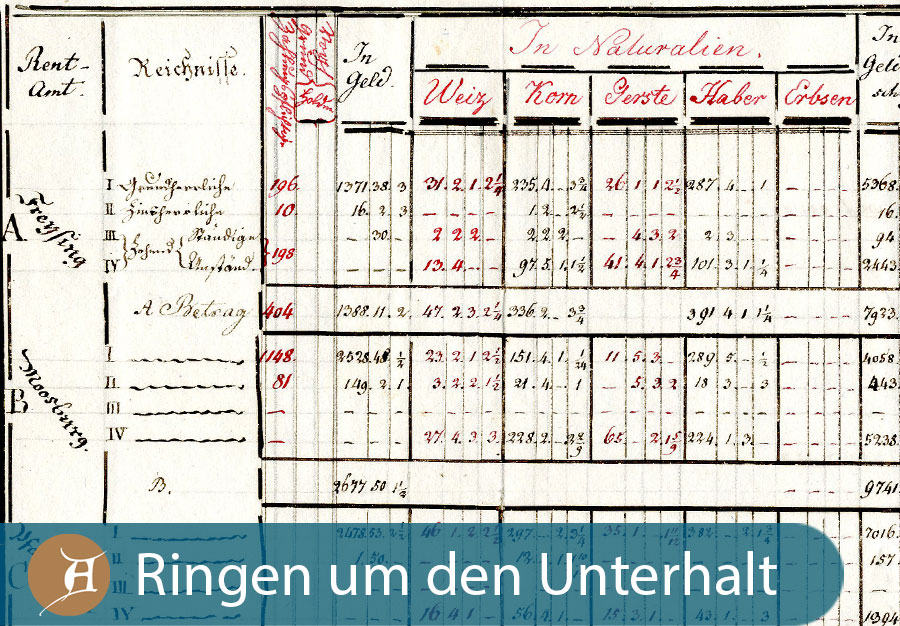 Rent-
Amt.
Reichnisse.
In
Geld.
In Naturalien.
In
Geld
Weiz Korn Gerste Haber Erbsen
A Freysing
I Grundherrliche 196 1371. 38. 3 31. 2. 1. 2¼ 235. 4. – 3¾ 26 1 1 2½ 287 4 – 1 – – – – 5368.
II Zinsherrliche 10 16. 2. 3 – – – – 1. 2. – 2½ – – – – – – – – – – – – 16.
III Zehend Ständige – 30. – 2 2 2 – 2. 2. 2. – – 4. 3. 2 2. 3. – – – – – – 94
IV Unständ. 198 – – – 13. 4. – – 97. 5. 1. 1½ 41. 4. 1. 2¾ 101. 3. 1 ¼ – – – – 2443.
A Betrag 404 1388. 11. 2. 47. 2. 3. 2¼ 336. 2. – 3¾ 391 4 1 1¼ 7923.
B Moosburg.
I 1148. 2528. 48 ½ 23. 2. 1 2½ 151. 4. 1. 11 5. 3. 289 5. – ½ 4058.
II 81 149. 2. 1. 3. 2. 2. 1½ 21. 4. – 1 – 5. 3 2 18 3. – 3 443.
III –
IV – 27. 4. 3 3. 228. 2. – 224. 1. 3. – 5238.
B. 2677. 50 1½ 9741.
C
I 2478. 53. 2½ 46 1. 2. 2½ 297. 35. 1. 382 7016.
II 1. 50. 12. 157.
III
IV 16 4 1 56. 4. 1 15. 3. 1. 43. 1. – 3 1394
A Ringen um den Unterhalt